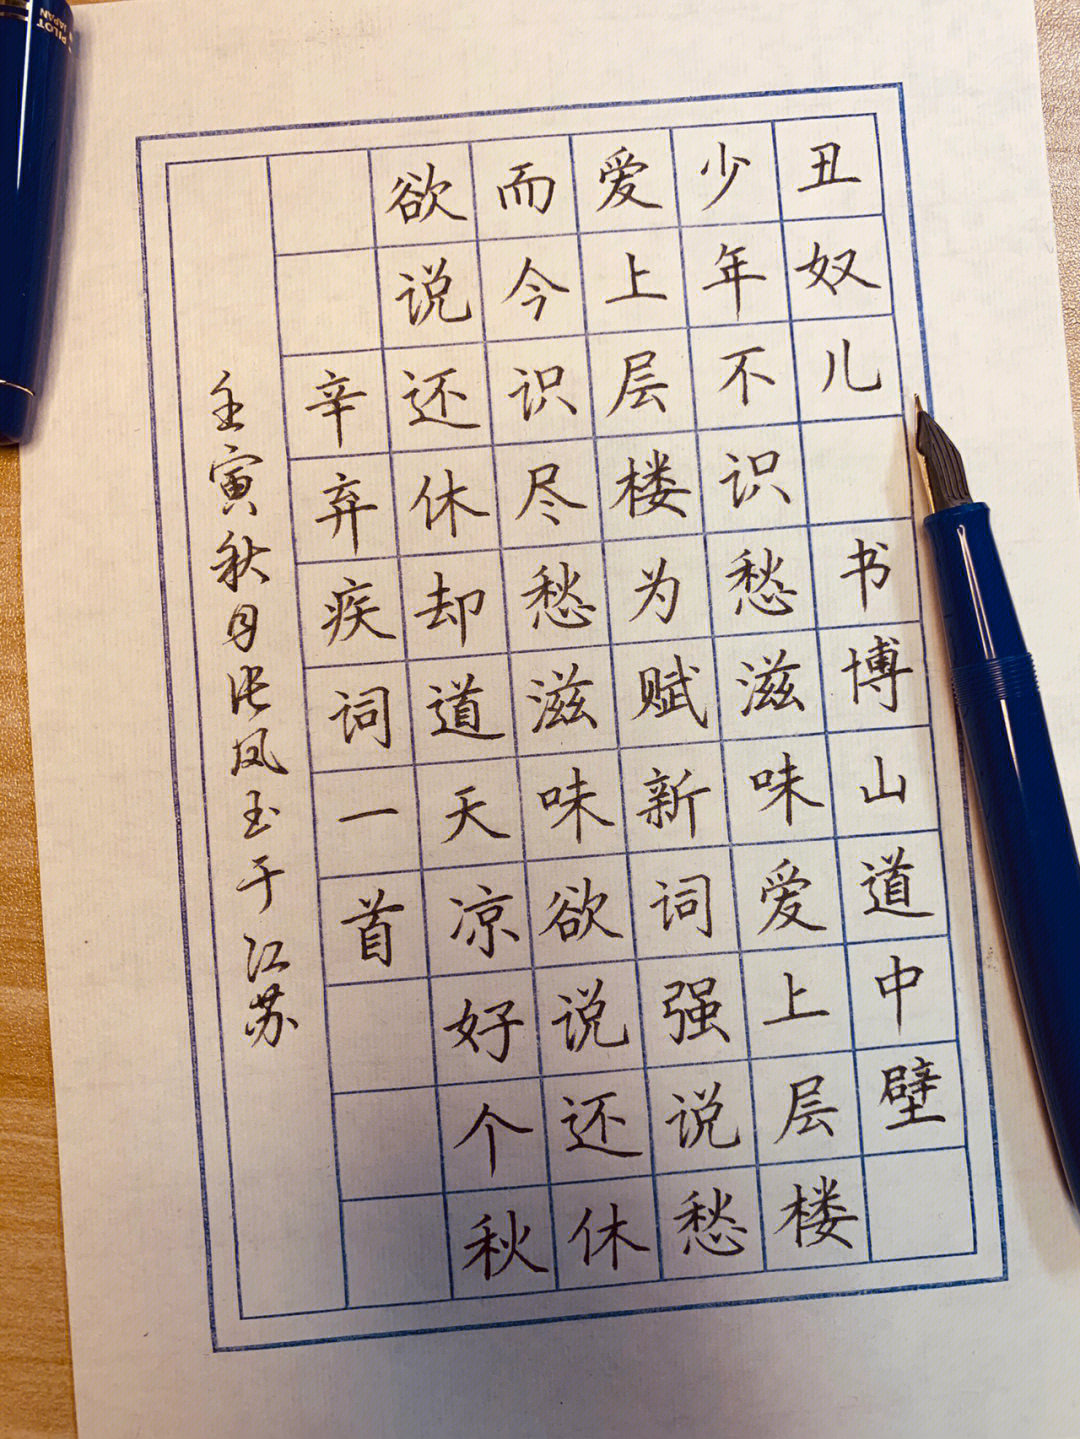 丑奴儿 书博山道中壁
少年不识愁滋味爱上层楼
爱上层楼为赋新词强说愁
而今识尽愁滋味欲说还休
欲说还休却道天凉好个秋
辛弃疾词一首
壬寅秋月张凤玉于江苏
PILOT
JAPAN